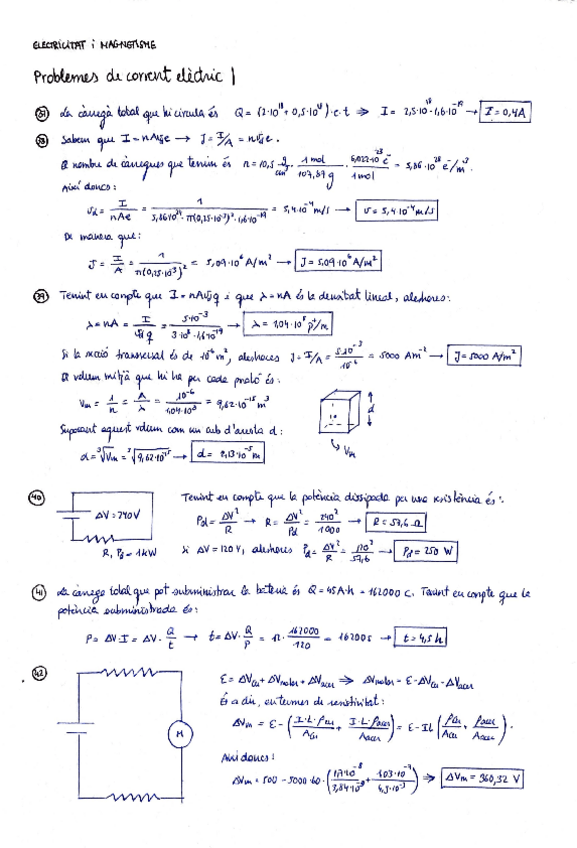 ELECTRICITAT i MAGNETISME
Problemes de corrent elèctric 1
37 La càrrega total que hi circula és Q = (2·10^18 + 0,5·10^18)·e·t ⇒ I = 2,5·10^18·1,6·10^-19 → I = 0,4A
38 Sabem que I = nAv_d e → J = I/A = nv_d e.
El nombre de càrregues que tenim és n = 10,5 g/cm³ · 1 mol/107,87 g · 6,022·10^23 e⁻/1 mol = 5,86·10^28 e⁻/m³.
Així doncs:
v_d = I/nAe = 1/5,86·10^28·π(0,25·10^-3)²·1,6·10^-19 = 5,4·10^-4 m/s → v = 5,4·10^-4 m/s
De manera que:
J = I/A = 1/π(0,25·10^-3)² = 5,09·10^6 A/m² → J = 5,09·10^6 A/m²
39 Tenint en compte que I = nAv_d q i que λ = nA és la densitat lineal, aleshores:
λ = nA = I/v_d q = 5·10^-3/3·10^8·1,6·10^-19 → λ = 1,04·10^8 p⁺/m
Si la secció transversal és de 10^-6 m², aleshores J = I/A = 5·10^-3/10^-6 = 5000 Am^-2 → J = 5000 A/m²
El volum mitjà que hi ha per cada protó és:
V_m = 1/n = A/λ = 10^-6/1,04·10^8 = 9,62·10^-15 m³
d
V_m
Suposant aquest volum com un cub d'aresta d:
d = ³√V_m = ³√9,62·10^-15 → d = 2,13·10^-5 m
40 Tenint en compte que la potència dissipada per una resistència és:
ΔV = 240V
P_d = ΔV²/R → R = ΔV²/P_d = 240²/1000 → R = 57,6 Ω
R, P_d = 1kW
si ΔV = 120V, aleshores P_d = ΔV²/R = 120²/57,6 → P_d = 250 W
41 La càrrega total que pot subministrar la bateria és Q = 45A·h = 162000 C. Tenint en compte que la
potència subministrada és:
P = ΔV·I = ΔV·Q/t → t = ΔV·Q/P = 12·162000/120 = 16200s → t = 4,5 h
42 ε = ΔV_Cu + ΔV_motor + ΔV_acer ⇒ ΔV_motor = ε - ΔV_Cu - ΔV_acer
És a dir, en termes de resistivitat:
M
ΔV_m = ε - (I·L·ρ_Cu/A_Cu + I·L·ρ_acer/A_acer) = ε - IL(ρ_Cu/A_Cu + ρ_acer/A_acer).
Així doncs:
ΔV_m = 500 - 5000·60·( ) ⇒ ΔV_m = 360,32 V